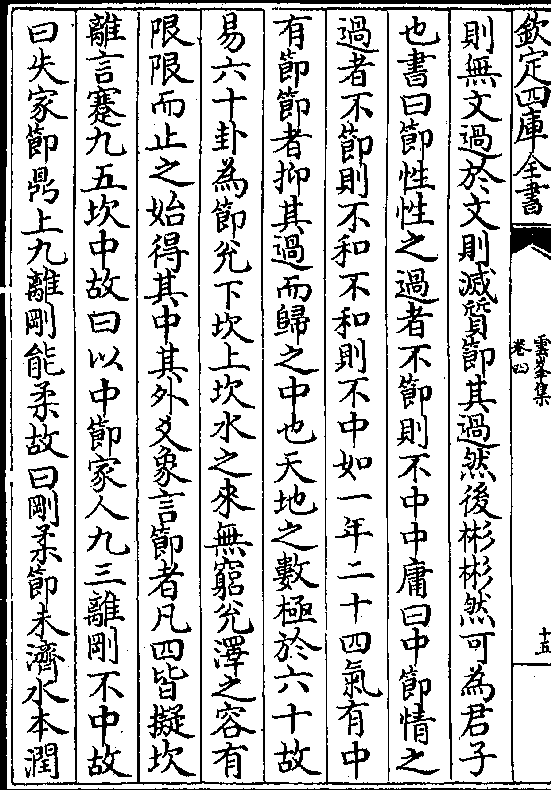 欽定四庫全書
雲峯集
卷四
十五
則無文過於文則滅質節其過然後彬彬然可為君子
也書曰節性性之過者不節則不中中庸曰中節情之
過者不節則不和不和則不中如一年二十四氣有中
有節節者抑其過而歸之中也天地之數極於六十故
易六十卦為節兊下坎上坎水之來無窮兊澤之容有
限限而止之始得其中其外爻象言節者凡四皆擬坎
離言蹇九五坎中故曰以中節家人九三離剛不中故
曰失家節鼎上九離剛能柔故曰剛柔節未濟水本潤